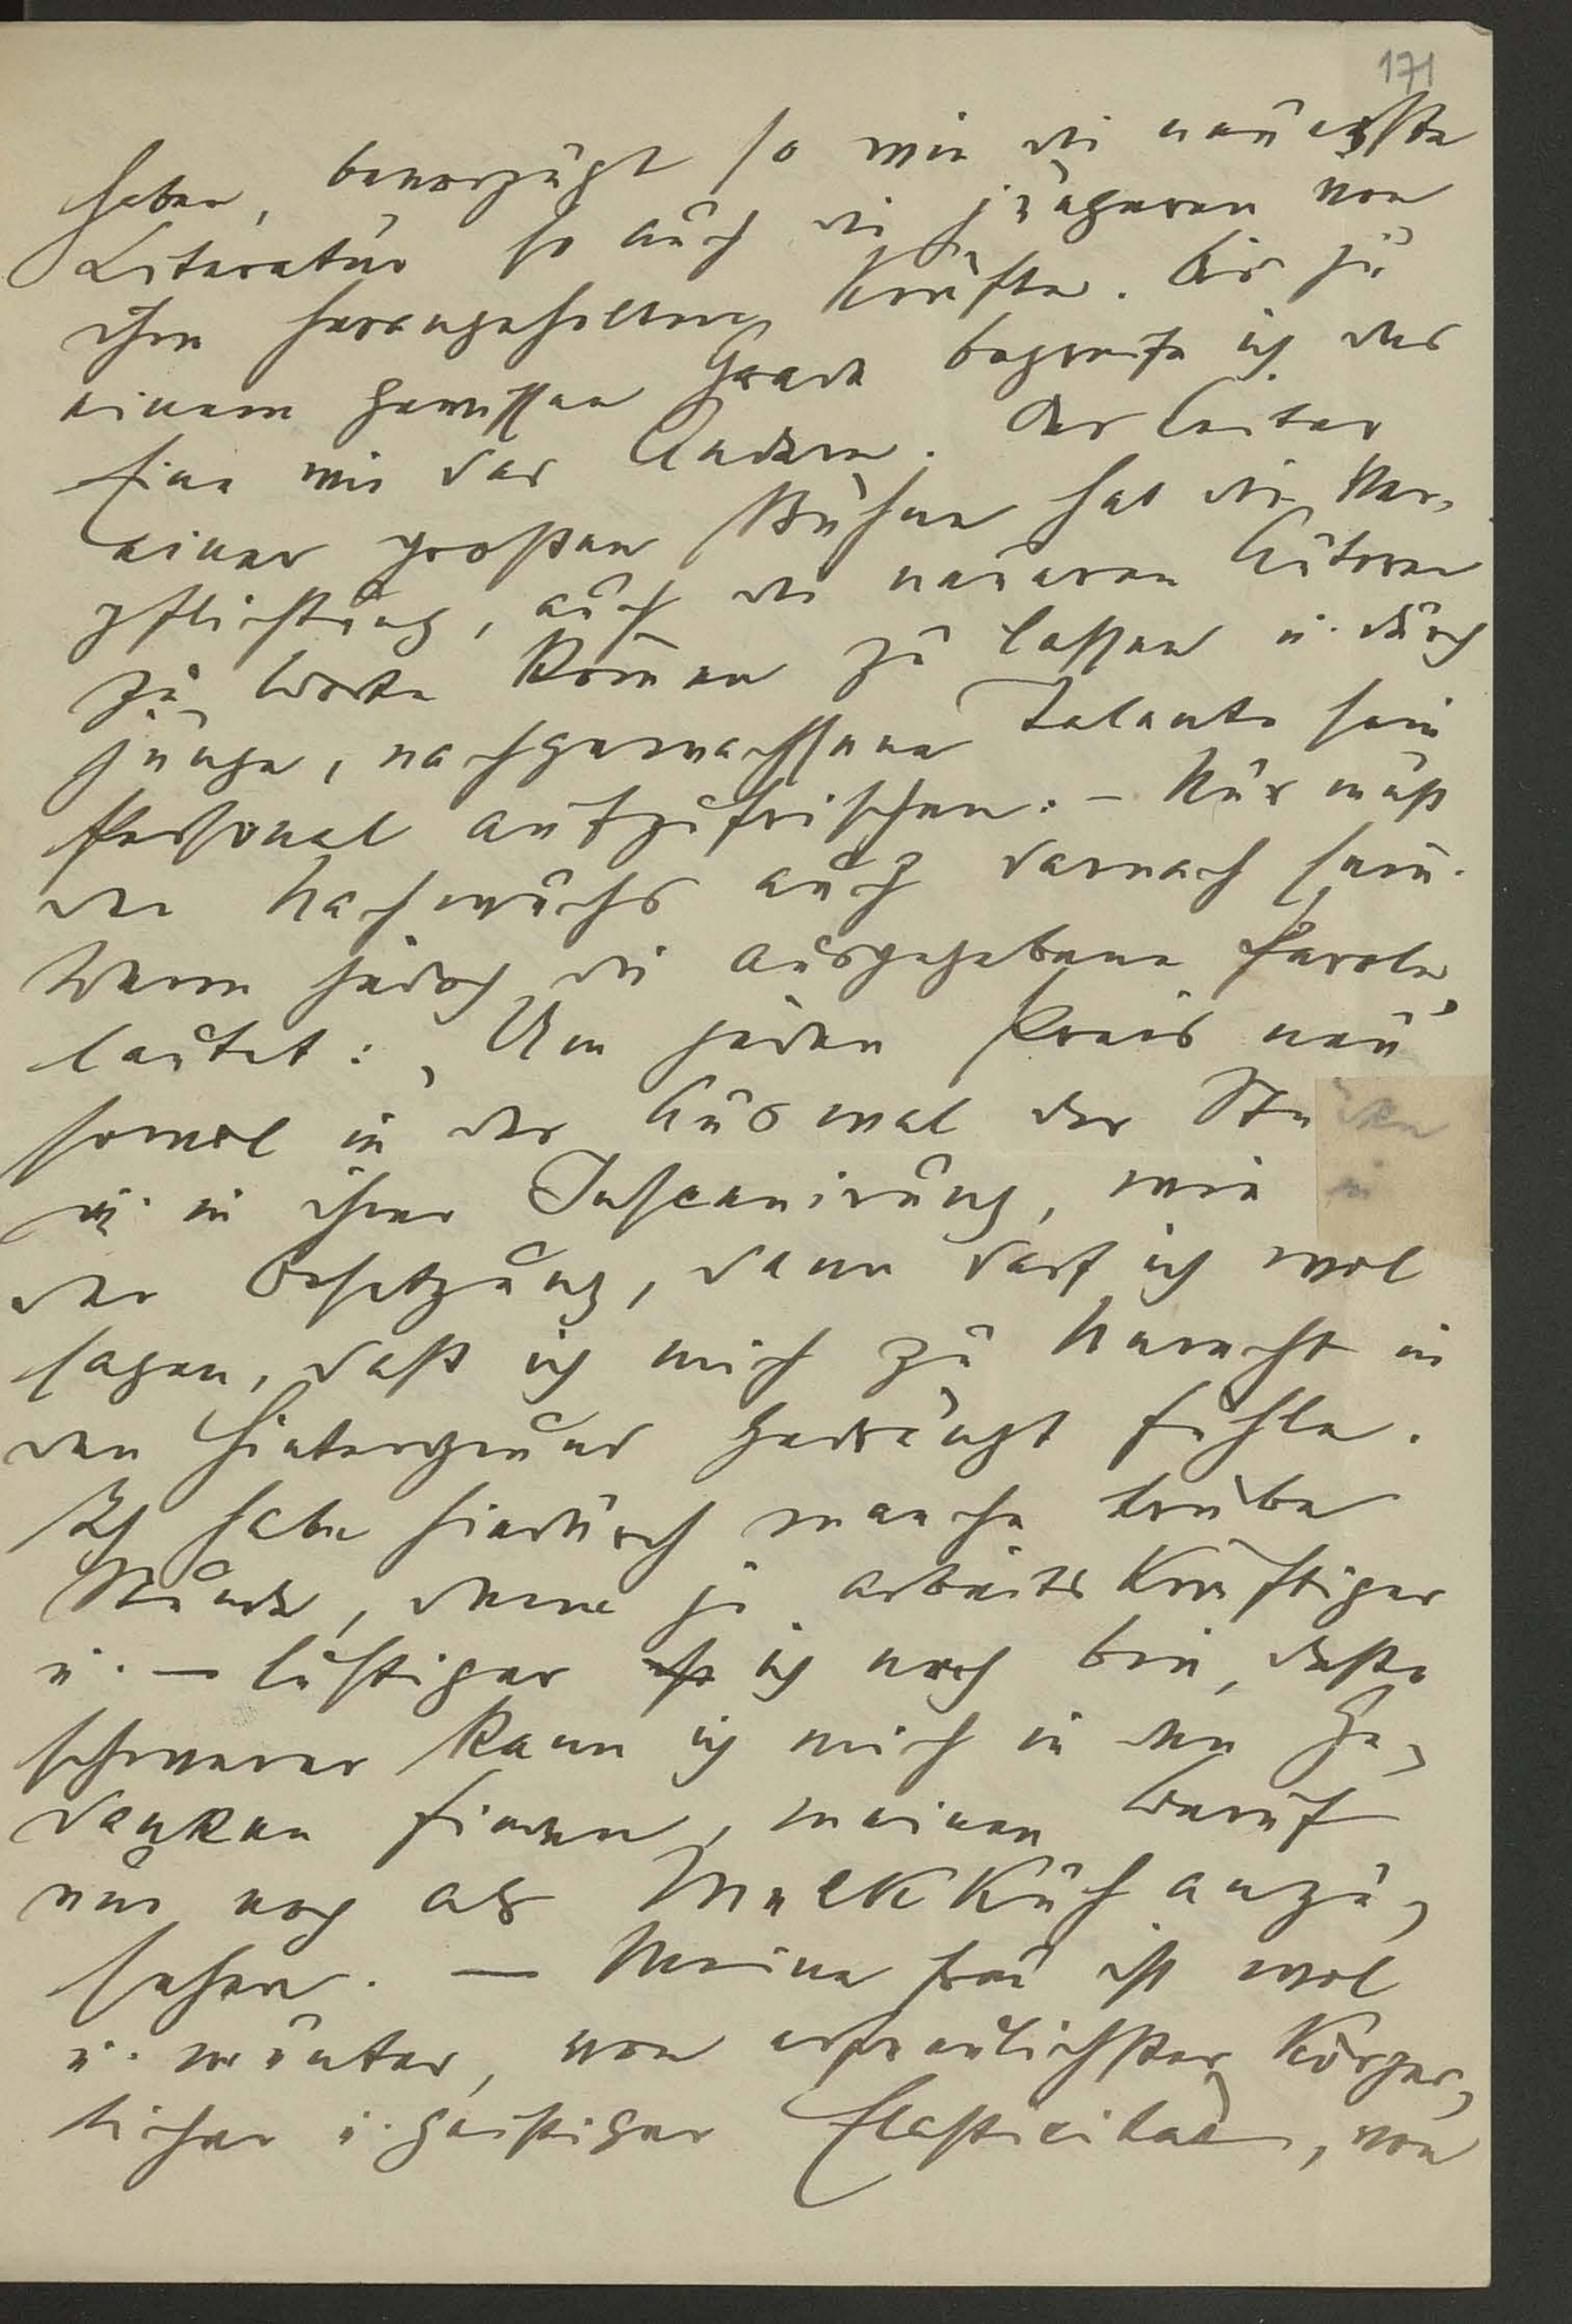 171
haben, bevorzugt so wie die neueste
Literatur so auch die jüngeren von
ihm herangeholten Kräfte. Bis zu
einem gewissen Grade begreife ich das
Eine wie das Andere. Der Leiter
einer großen Bühne hat die Ver-
pflichtung, auch die neueren Autoren
zu Worte kom̄en zu lassen u. durch
junge, nachgewachsene Talente sein
Personal aufzufrischen. – Nur muß
der Nachwuchs auch darnach sein.
Wenn jedoch die ausgegebene Parole
lautet: „Um jeden Preis neu“
sowol in der Auswal der Stücke
u. in ihrer Inscenirung, wie in
der Besetzung, dann darf ich wol
sagen, daß ich mich zu Unrecht in
den Hintergrund gedrängt fühle.
Ich habe hiedurch manche trübe
Stunde, denn je arbeitskräftiger
u. – lustiger ich noch bin, desto
schwerer kann ich mich in den Ge-
danken finden, meinen Beruf
nur noch als Melkkuh anzu-
sehen. — Meine Frau ist wol
u. munter, von erfreulichster körper-
licher u. geistiger Elasticität, von